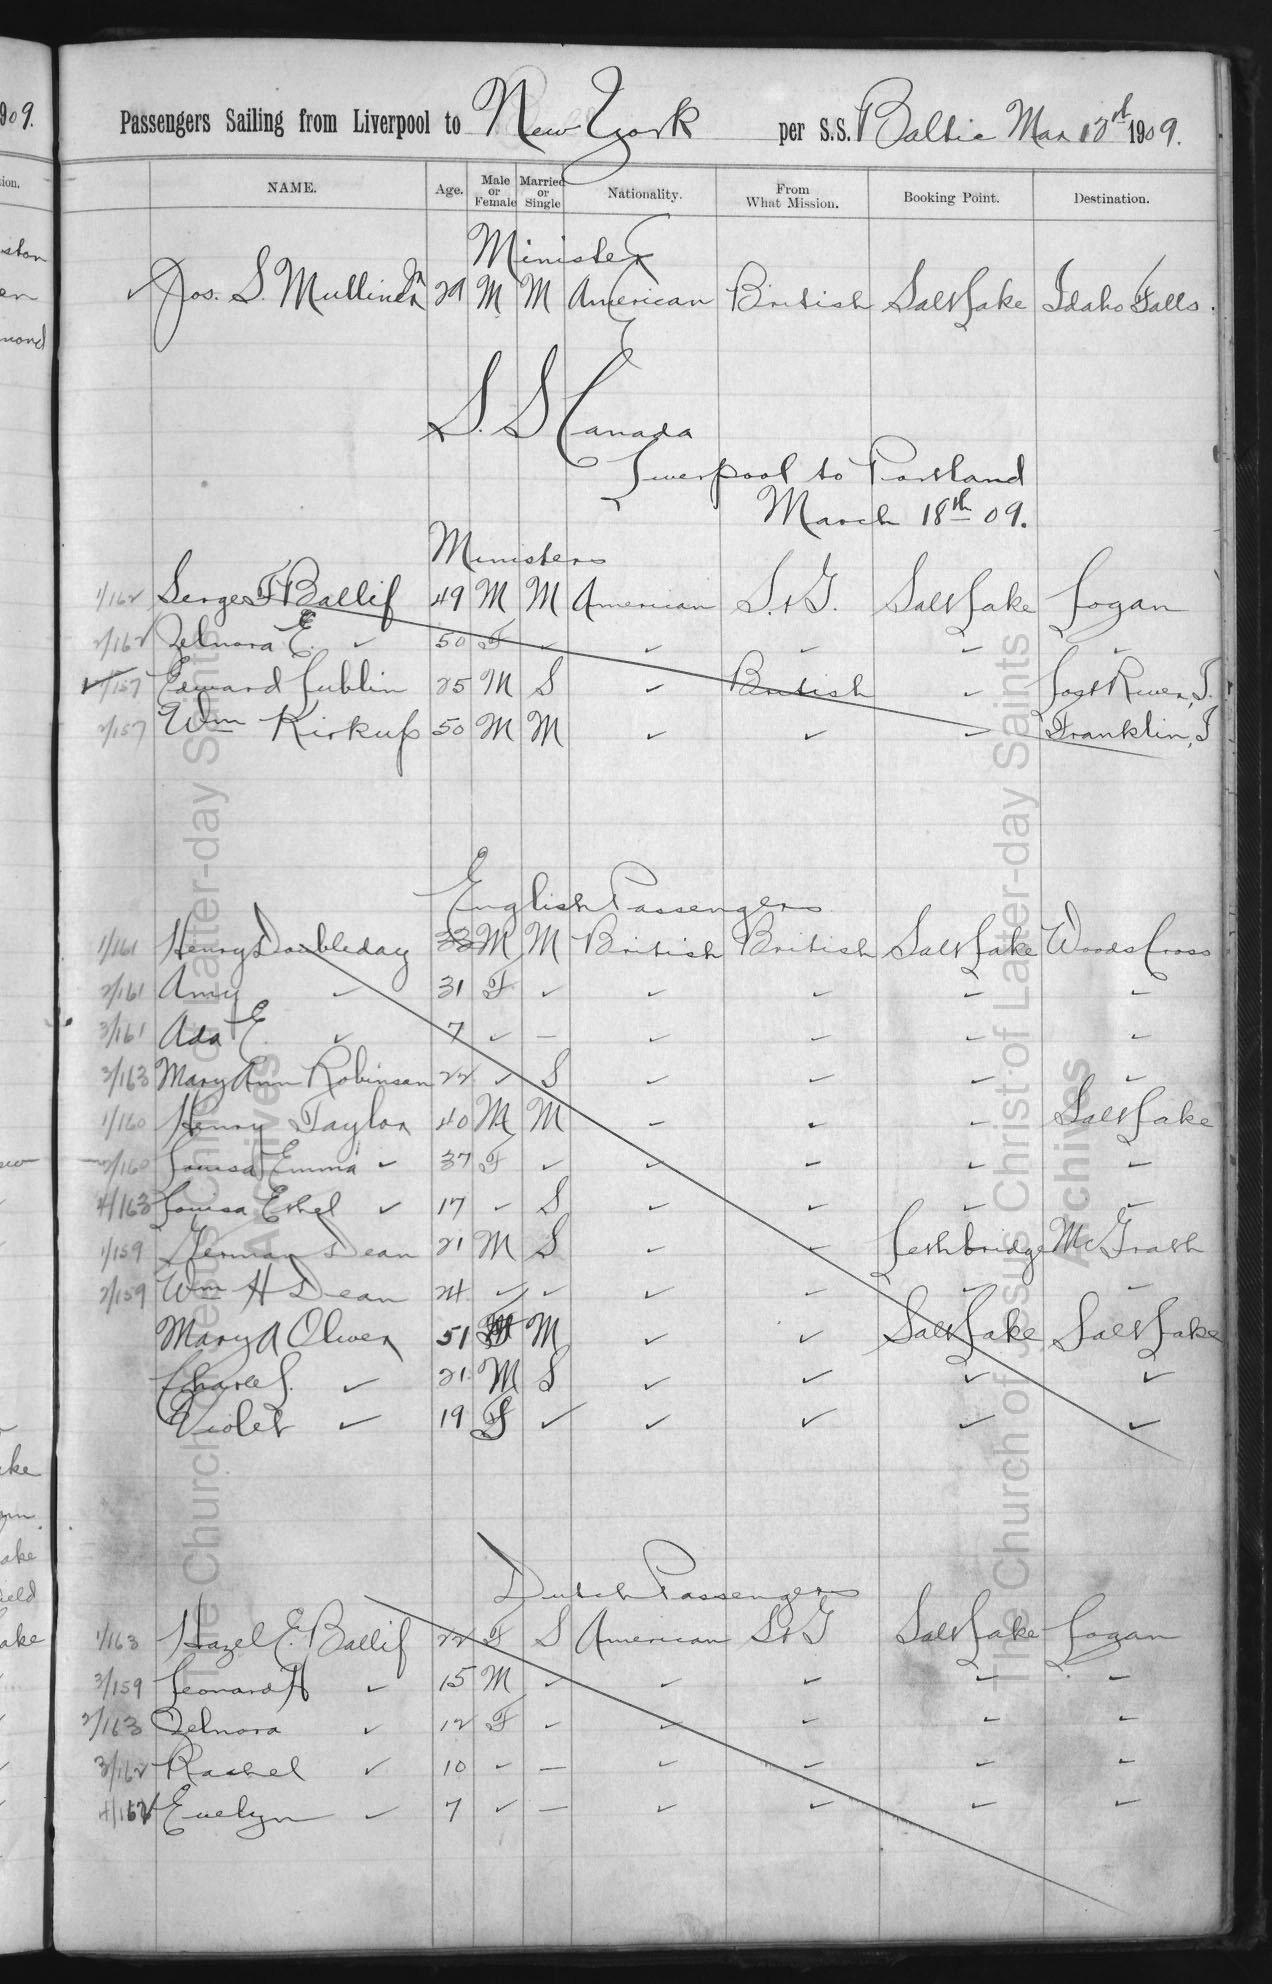 1909.
Passengers Sailing from Liverpool to New York per S.S. Baltic Mar 13th 1909.
NAME. Age. Male or Female Married or Single Nationality. From What Mission. Booking Point. Destination.
Minister
Jos. S. Mulliner Jr 29 M M American British Salt Lake Idaho Falls.
S. S Canada
Liverpool to Portland
March 18th 09.
Ministers
1/162 Serge F Ballif 49 M M American S. & G. Salt Lake Logan
2/162 Zelnora E. ✓ 50 F ✓ ✓ ✓ ✓ ✓
1/157 Edward Lublin 25 M S ✓ British ✓ Lost River, I.
2/157 Wm Kirkup 50 M M ✓ ✓ ✓ Franklin, I
English Passengers
1/161 Henry Doubleday 33 M M British British Salt Lake Woods Cross
2/161 Amy ✓ 31 F ✓ ✓ ✓ ✓ ✓
3/161 Ada E. ✓ 7 ✓ — ✓ ✓ ✓ ✓
3/163 Mary Ann Robinson 22 ✓ S ✓ ✓ ✓ ✓
1/160 Henry Taylor 40 M M ✓ ✓ ✓ Salt Lake
2/160 Louisa Emma ✓ 37 F ✓ ✓ ✓ ✓ ✓
4/163 Louisa Ethel ✓ 17 ✓ S ✓ ✓ ✓ ✓
1/159 Herman Dean 21 M S ✓ ✓ Lethbridge McGrath
2/159 Wm H Dean 24 ✓ ✓ ✓ ✓ ✓ ✓
Mary A Oliver 51 F M ✓ ✓ Salt Lake Salt Lake
Charles. ✓ 21 M S ✓ ✓ ✓ ✓
Violet ✓ 19 F ✓ ✓ ✓ ✓ ✓
Dutch Passengers
1/163 Hazel E. Ballif 22 F S American S & G Salt Lake Logan
3/159 Leonard H ✓ 15 M ✓ ✓ ✓ ✓ ✓
2/163 Zelnora ✓ 12 F ✓ ✓ ✓ ✓ ✓
3/162 Rachel ✓ 10 ✓ — ✓ ✓ ✓ ✓
4/162 Evelyn ✓ 7 ✓ — ✓ ✓ ✓ ✓
The Church of Jesus Christ of Latter-day Saints
Archives
The Church of Jesus Christ of Latter-day Saints
Archives